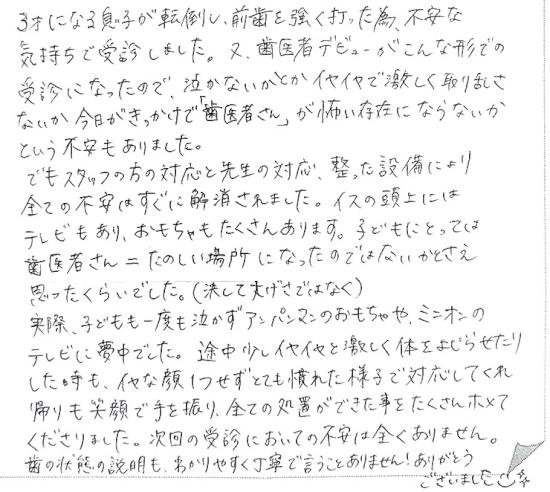 3才になる息子が転倒し、前歯を強く打った為、不安な
気持ちで受診しました。又、歯医者デビューがこんな形での
受診になったので、泣かないかとかイヤイヤで激しく取り乱さ
ないか今日がきっかけで「歯医者さん」が怖い存在にならないか
という不安もありました。
でもスタッフの方の対応と先生の対応、整った設備により
全ての不安はすぐに解消されました。イスの頭上には
テレビもあり、おもちゃもたくさんあります。子どもにとっては
歯医者さん=たのしい場所になったのではないかとさえ
思ったくらいでした。(決して大げさではなく)
実際、子どもも一度も泣かずアンパンマンのおもちゃや、ミニオンの
テレビに夢中でした。途中少しイヤイヤと激しく体をよじらせたり
した時も、イヤな顔1つせずとても慣れた様子で対応してくれ
帰りも笑顔で手を振り、全ての処置ができた事をたくさんホメて
くださりました。次回の受診においての不安は全くありません。
歯の状態の説明も、わかりやすく丁寧で言うことありません!ありがとう
ございました